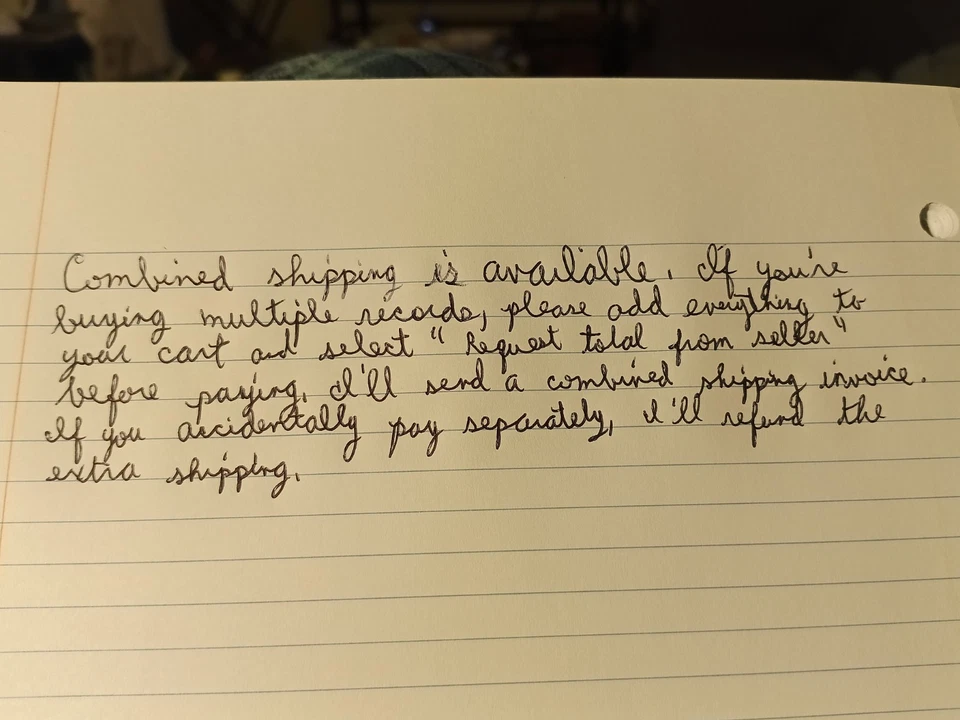 Combined shipping is available. If you're
buying multiple records, please add everything to
your cart and select "Request total from seller"
before paying. I'll send a combined shipping invoice.
If you accidentally pay separately, I'll refund the
extra shipping.